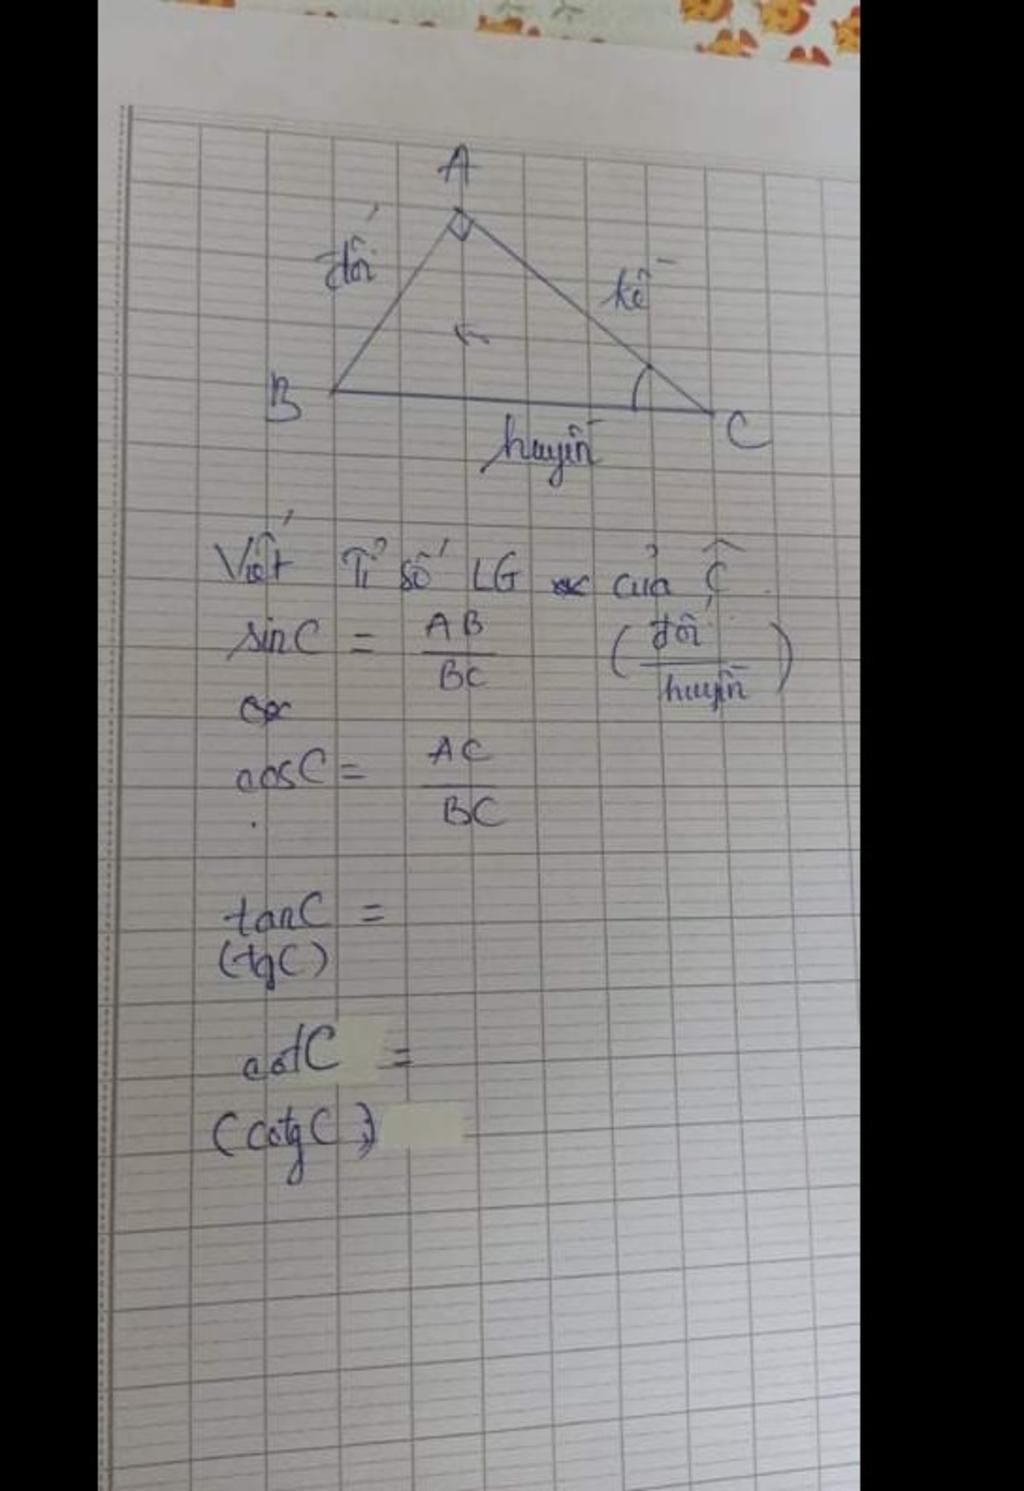 A
đối
kề
B
C
huyền
Viết Tỉ số LG của Ĉ
sinC = AB / BC (đối / huyền)
cosC = AC / BC
tanC =
(tgC)
cotC =
(cotgC)